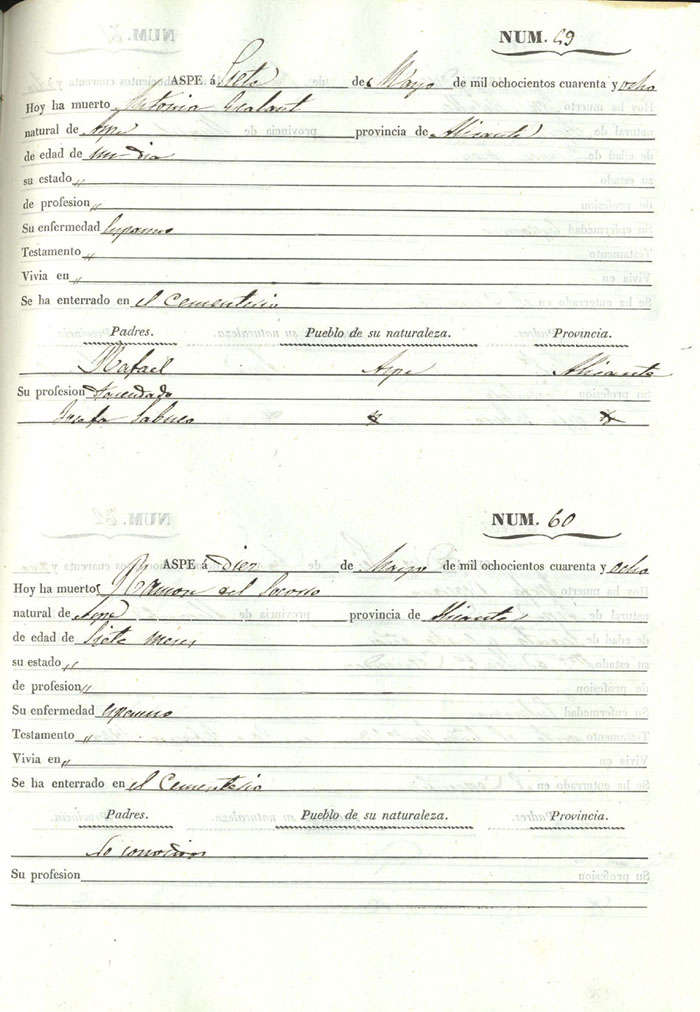 NUM. 59
ASPE á Siete de Mayo de mil ochocientos cuarenta y ocho
Hoy ha muerto Antonia Gralant
natural de Aspe provincia de Alicante
de edad de un dia
su estado „
de profesion „
Su enfermedad espasmo
Testamento „
Vivia en „
Se ha enterrado en el Cementerio
Padres. Pueblo de su naturaleza. Provincia.
Rafael Aspe Alicante
Su profesion Hacendado
Josefa Sabuco
NUM. 60
ASPE á Diez de Mayo de mil ochocientos cuarenta y ocho
Hoy ha muerto Ramon del Socorro
natural de Aspe provincia de Alicante
de edad de Siete meses
su estado „
de profesion „
Su enfermedad espasmo
Testamento „
Vivia en „
Se ha enterrado en el Cementerio
Padres. Pueblo de su naturaleza. Provincia.
No conocidos
Su profesion